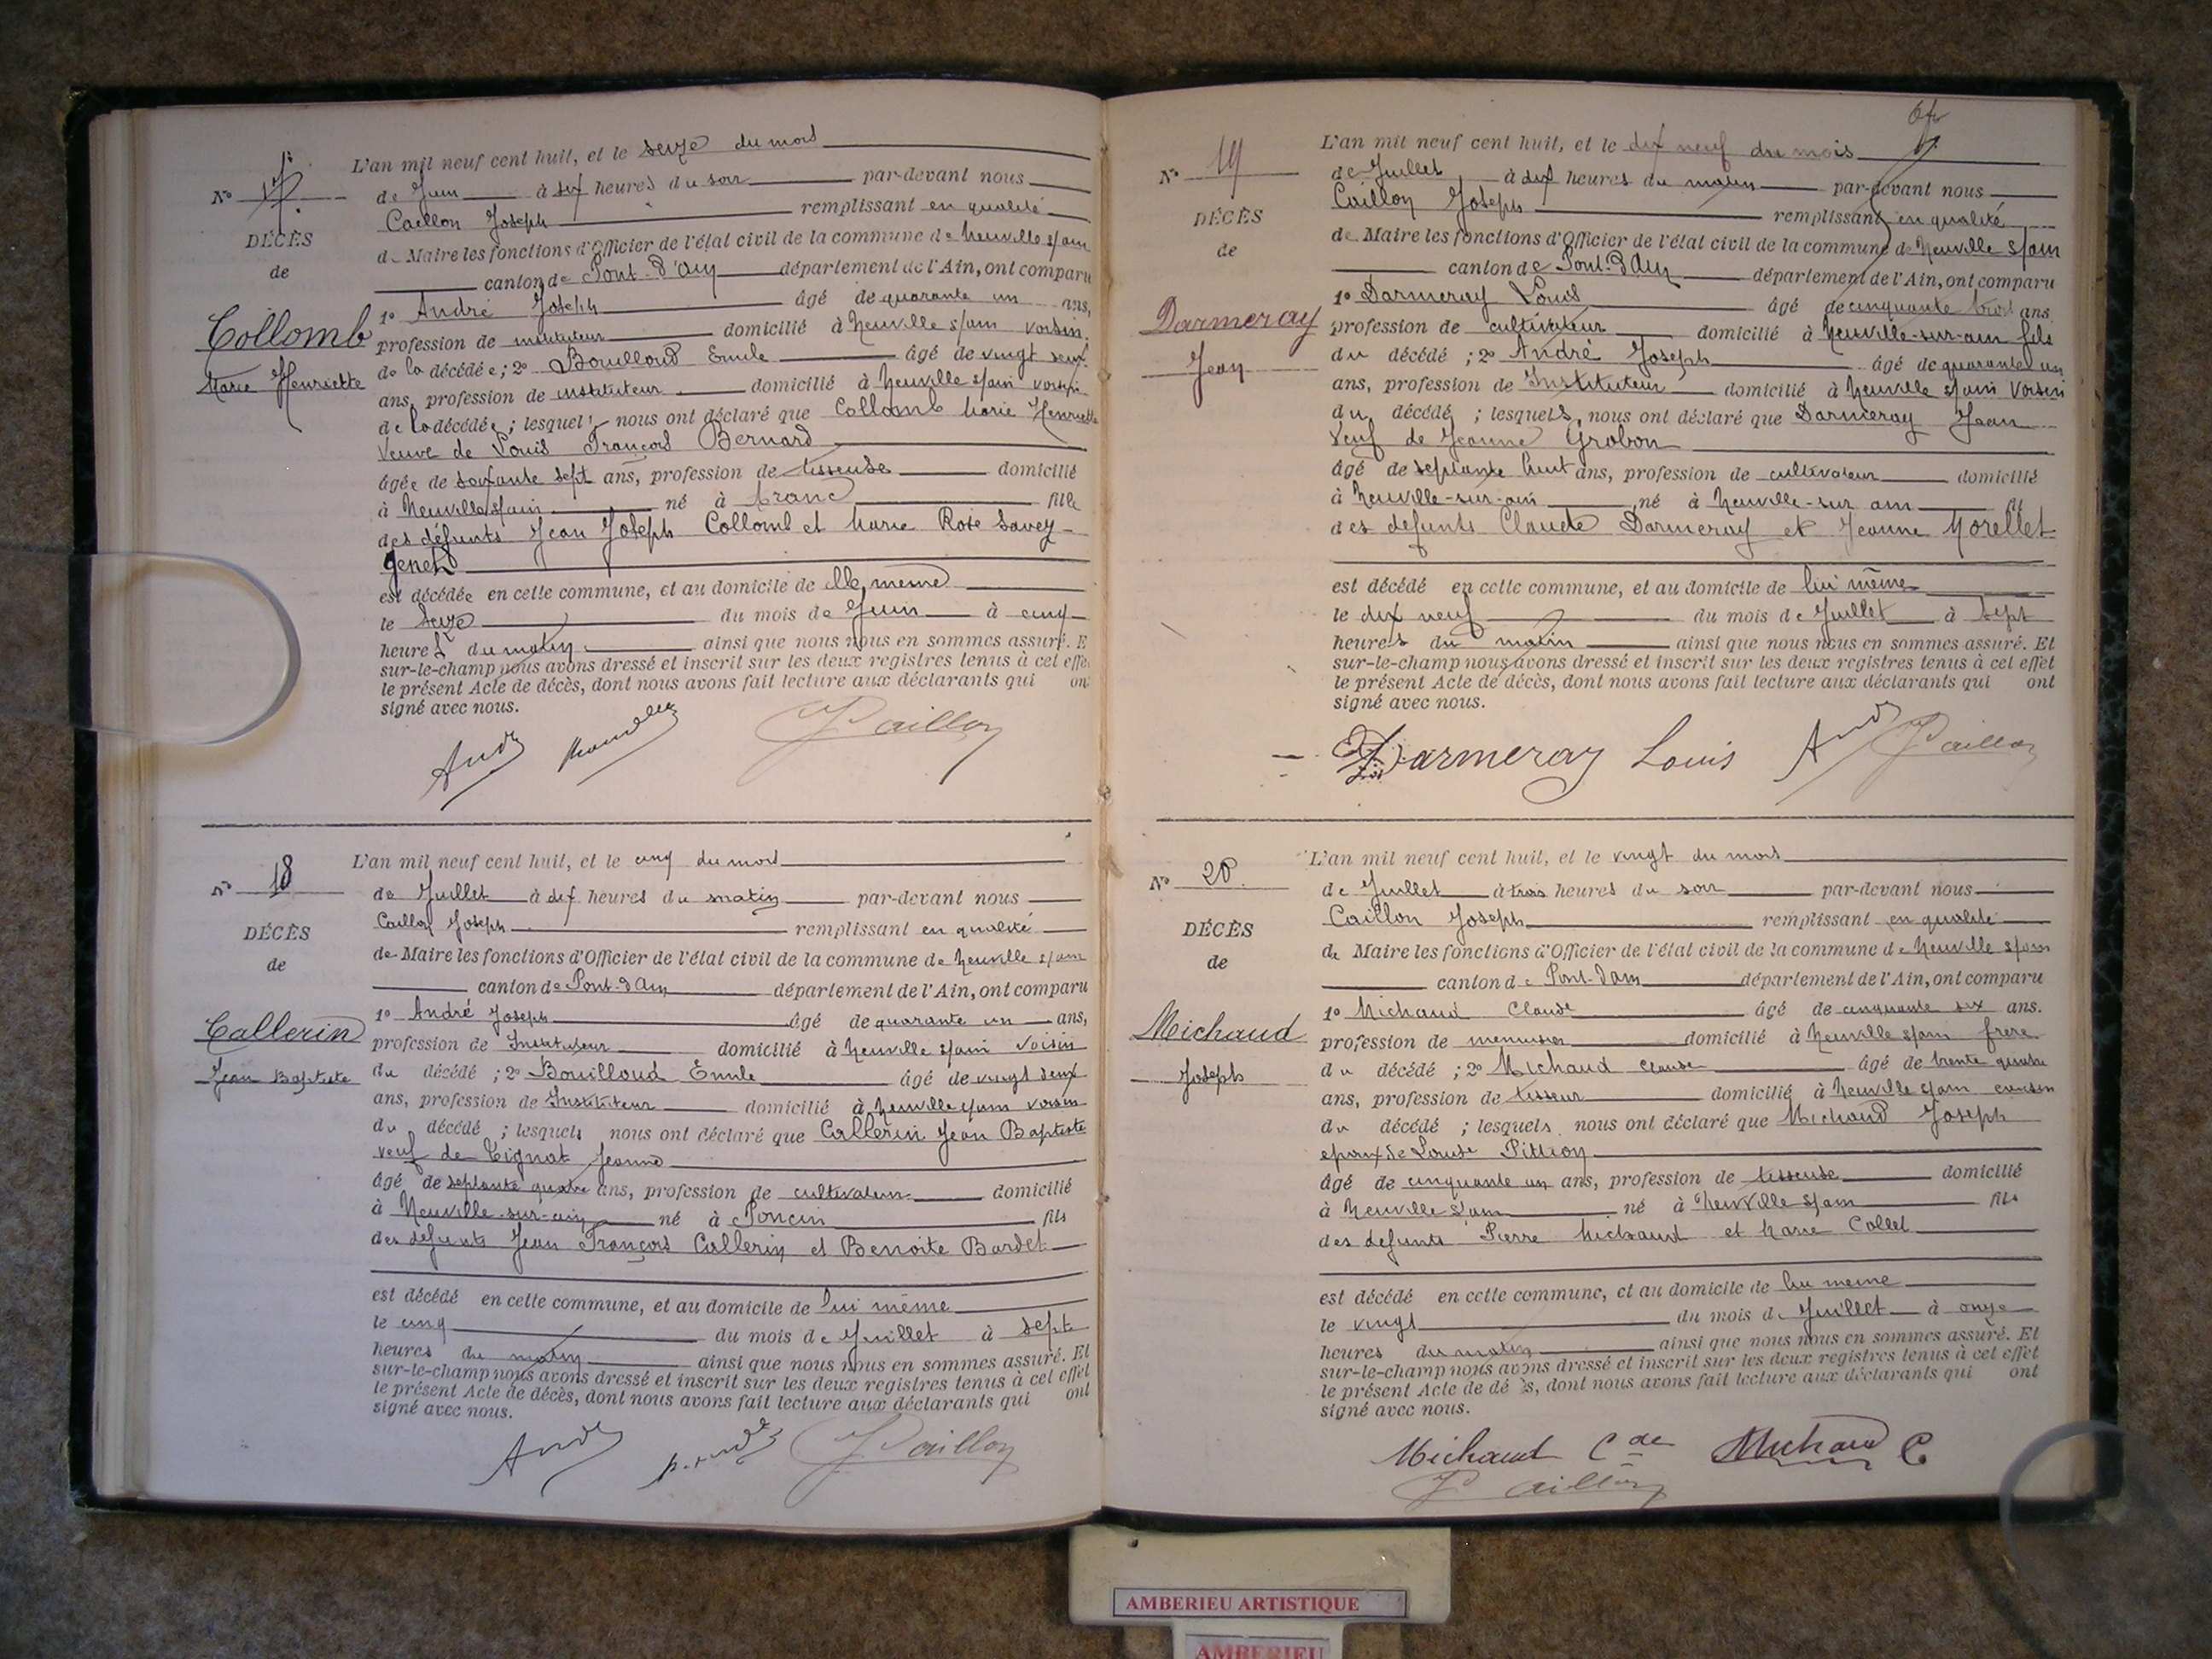 L'an mil neuf cent huit, et le seize du mois
No 17
de Juin à six heures du soir par-devant nous
Caillon Joseph remplissant en qualité
DÉCÈS
de Maire les fonctions d'Officier de l'état civil de la commune de Neuville s/ain
de
canton de Pont-d'Ain département de l'Ain, ont comparu
1o André Joseph âgé de quarante un ans,
Collomb
profession de instituteur domicilié à Neuville s/ain voisin
de la décédée ; 2o Bouilloud Emile âgé de vingt deux
Marie Henriette
ans, profession de instituteur domicilié à Neuville s/ain voisin
de la décédée ; lesquels nous ont déclaré que Collomb Marie Henriette
Veuve de Louis François Bernard
âgée de soixante sept ans, profession de tisseuse domicilié
à Neuville s/ain né à fille
des défunts Jean Joseph Collomb et Marie Rose Savey
Genet
est décédée en cette commune, et au domicile de elle même
le seize du mois de Juin à cinq
heures du matin ainsi que nous nous en sommes assuré. E
sur-le-champ nous avons dressé et inscrit sur les deux registres tenus à cet effe
le présent Acte de décès, dont nous avons fait lecture aux déclarants qui on
signé avec nous.
André JCaillon
L'an mil neuf cent huit, et le cinq du mois
No 18
de Juillet à dix heures du matin par-devant nous
Caillon Joseph remplissant en qualité
DÉCÈS
de Maire les fonctions d'Officier de l'état civil de la commune de Neuville s/ain
de
canton de Pont-d'Ain département de l'Ain, ont comparu
1o André Joseph âgé de quarante un ans,
Callerin
profession de Instituteur domicilié à Neuville s/ain voisin
Jean Baptiste
du décédé ; 2o Bouilloud Emile âgé de vingt deux
ans, profession de Instituteur domicilié à Neuville s/ain voisin
du décédé ; lesquels nous ont déclaré que Callerin Jean Baptiste
veuf de Tignat Jeanne
âgé de septante quatre ans, profession de cultivateur domicilié
à Neuville-sur-ain né à Poncin fils
des défunts Jean François Callerin et Benoite Bardet
est décédé en cette commune, et au domicile de lui même
le cinq du mois de Juillet à sept
heures du matin ainsi que nous nous en sommes assuré. Et
sur-le-champ nous avons dressé et inscrit sur les deux registres tenus à cet effet
le présent Acte de décès, dont nous avons fait lecture aux déclarants qui ont
signé avec nous.
André JCaillon
L'an mil neuf cent huit, et le dix neuf du mois
No 19
de Juillet à dix heures du matin par-devant nous
Caillon Joseph remplissant en qualité
DÉCÈS
de Maire les fonctions d'Officier de l'état civil de la commune de Neuville s/ain
de
canton de Pont-d'Ain département de l'Ain, ont comparu
1o Darmeray Louis âgé de cinquante trois ans.
Darmeray
profession de cultivateur domicilié à Neuville-sur-ain fils
Jean
du décédé ; 2o André Joseph âgé de quarante un
ans, profession de Instituteur domicilié à Neuville s/ain voisin
du décédé ; lesquels nous ont déclaré que Darmeray Jean
Veuf de Jeanne Grobon
âgé de septante huit ans, profession de cultivateur domicilié
à Neuville-sur-ain né à Neuville-sur ain fils
des défunts Claude Darmeray et Jeanne Morellet
est décédé en cette commune, et au domicile de lui même
le dix neuf du mois de Juillet à sept
heures du matin ainsi que nous nous en sommes assuré. Et
sur-le-champ nous avons dressé et inscrit sur les deux registres tenus à cet effet
le présent Acte de décès, dont nous avons fait lecture aux déclarants qui ont
signé avec nous.
Darmeray Louis André JCaillon
L'an mil neuf cent huit, et le vingt du mois
No 20
de Juillet à trois heures du soir par-devant nous
Caillon Joseph remplissant en qualité
DÉCÈS
de Maire les fonctions d'Officier de l'état civil de la commune de Neuville s/ain
de
canton de Pont-d'ain département de l'Ain, ont comparu
1o Michaud Claude âgé de cinquante six ans.
Michaud
profession de menuisier domicilié à Neuville s/ain frère
Joseph
du décédé ; 2o Michaud Claude âgé de trente quatre
ans, profession de tisseur domicilié à Neuville s/ain cousin
du décédé ; lesquels nous ont déclaré que Michaud Joseph
époux de Louise Pittion
âgé de cinquante un ans, profession de tisseuse domicilié
à Neuville s/ain né à Neuville s/ain fils
des défunts Pierre Michaud et Marie Collet
est décédé en cette commune, et au domicile de lui meme
le vingt du mois de Juillet à onze
heures du matin ainsi que nous nous en sommes assuré. Et
sur-le-champ nous avons dressé et inscrit sur les deux registres tenus à cet effet
le présent Acte de dé s, dont nous avons fait lecture aux déclarants qui ont
signé avec nous.
Michaud Cde Michaud C
JCaillon
AMBERIEU ARTISTIQUE
AMBERIEU